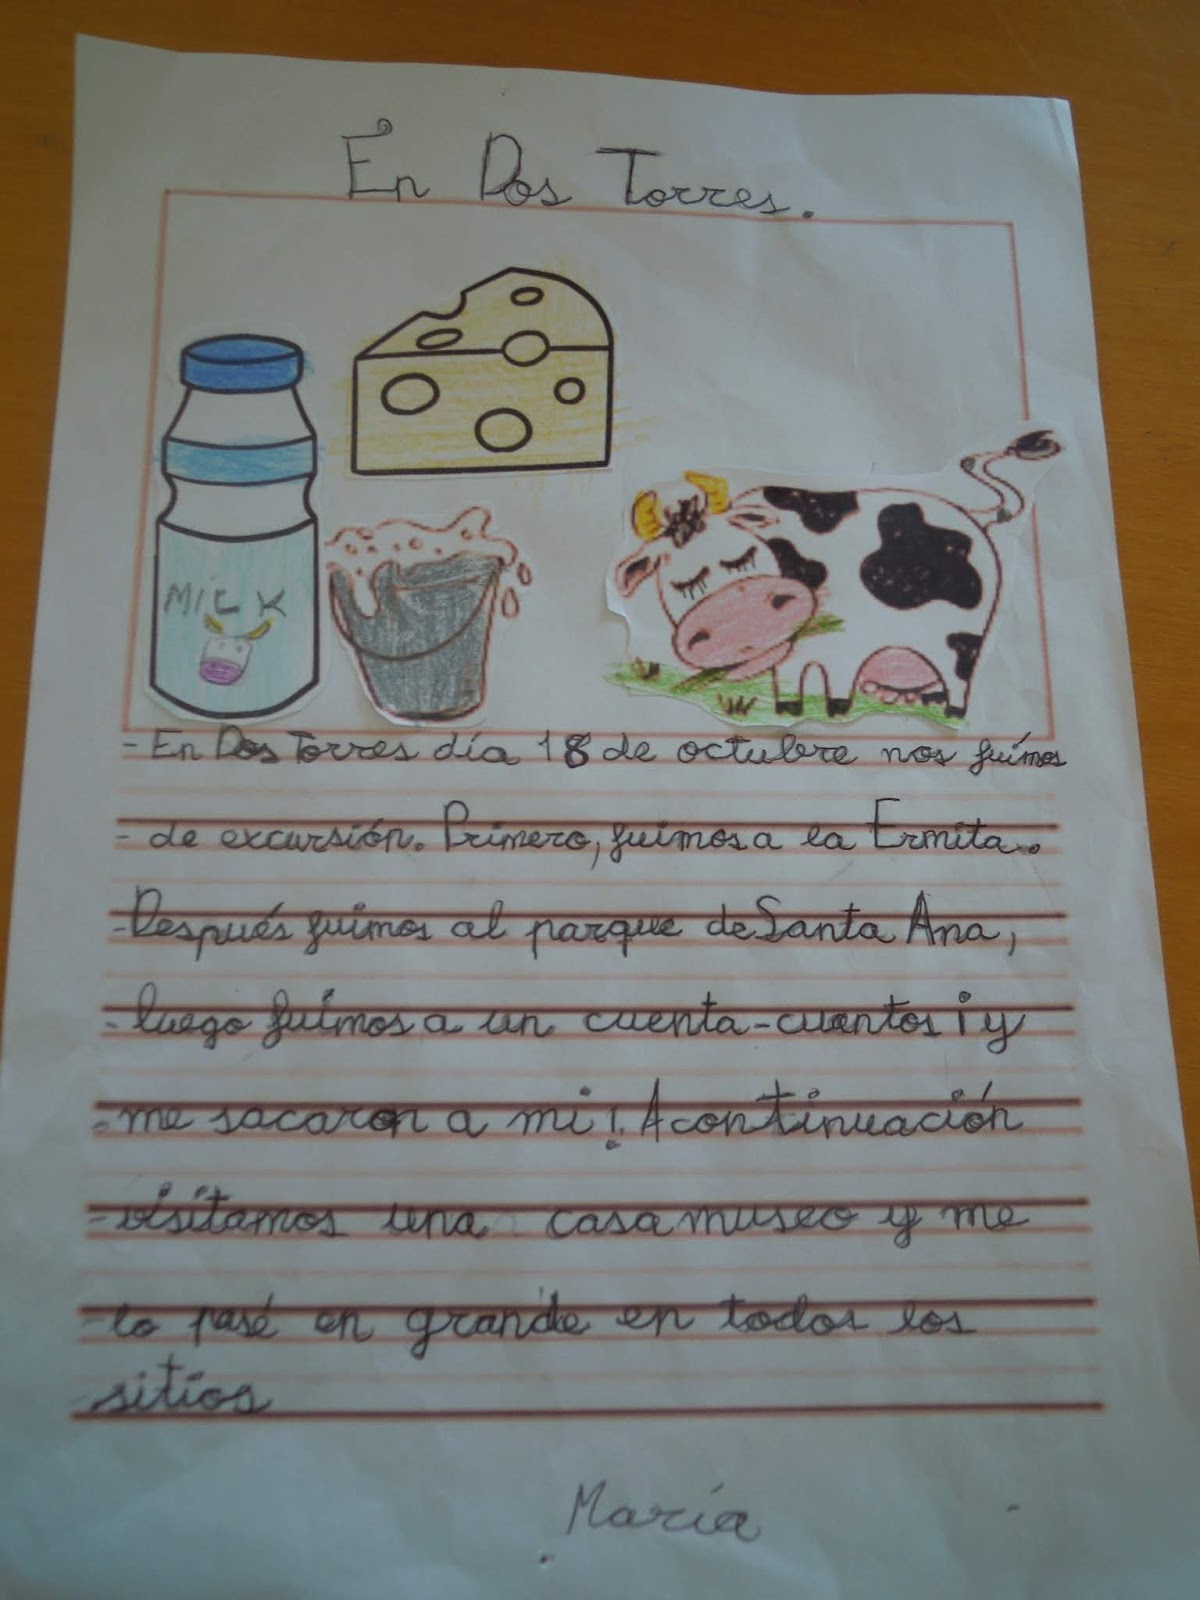 En Dos Torres.
MILK
- En Dos Torres día 18 de octubre nos fuímos
- de excursión. Primero, fuimos a la Ermita.
- Después fuimos al parque de Santa Ana,
- luego fuímos a un cuenta-cuentos ¡y
- me sacaron a mi!. A continuación
- visitamos una casa museo y me
lo pasé en grande en todos los
sitios
María